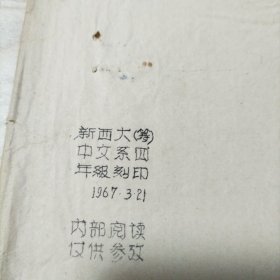 新西大(筹)
中文系四
年级刻印
1967·3·21
内部阅读
仅供参攷